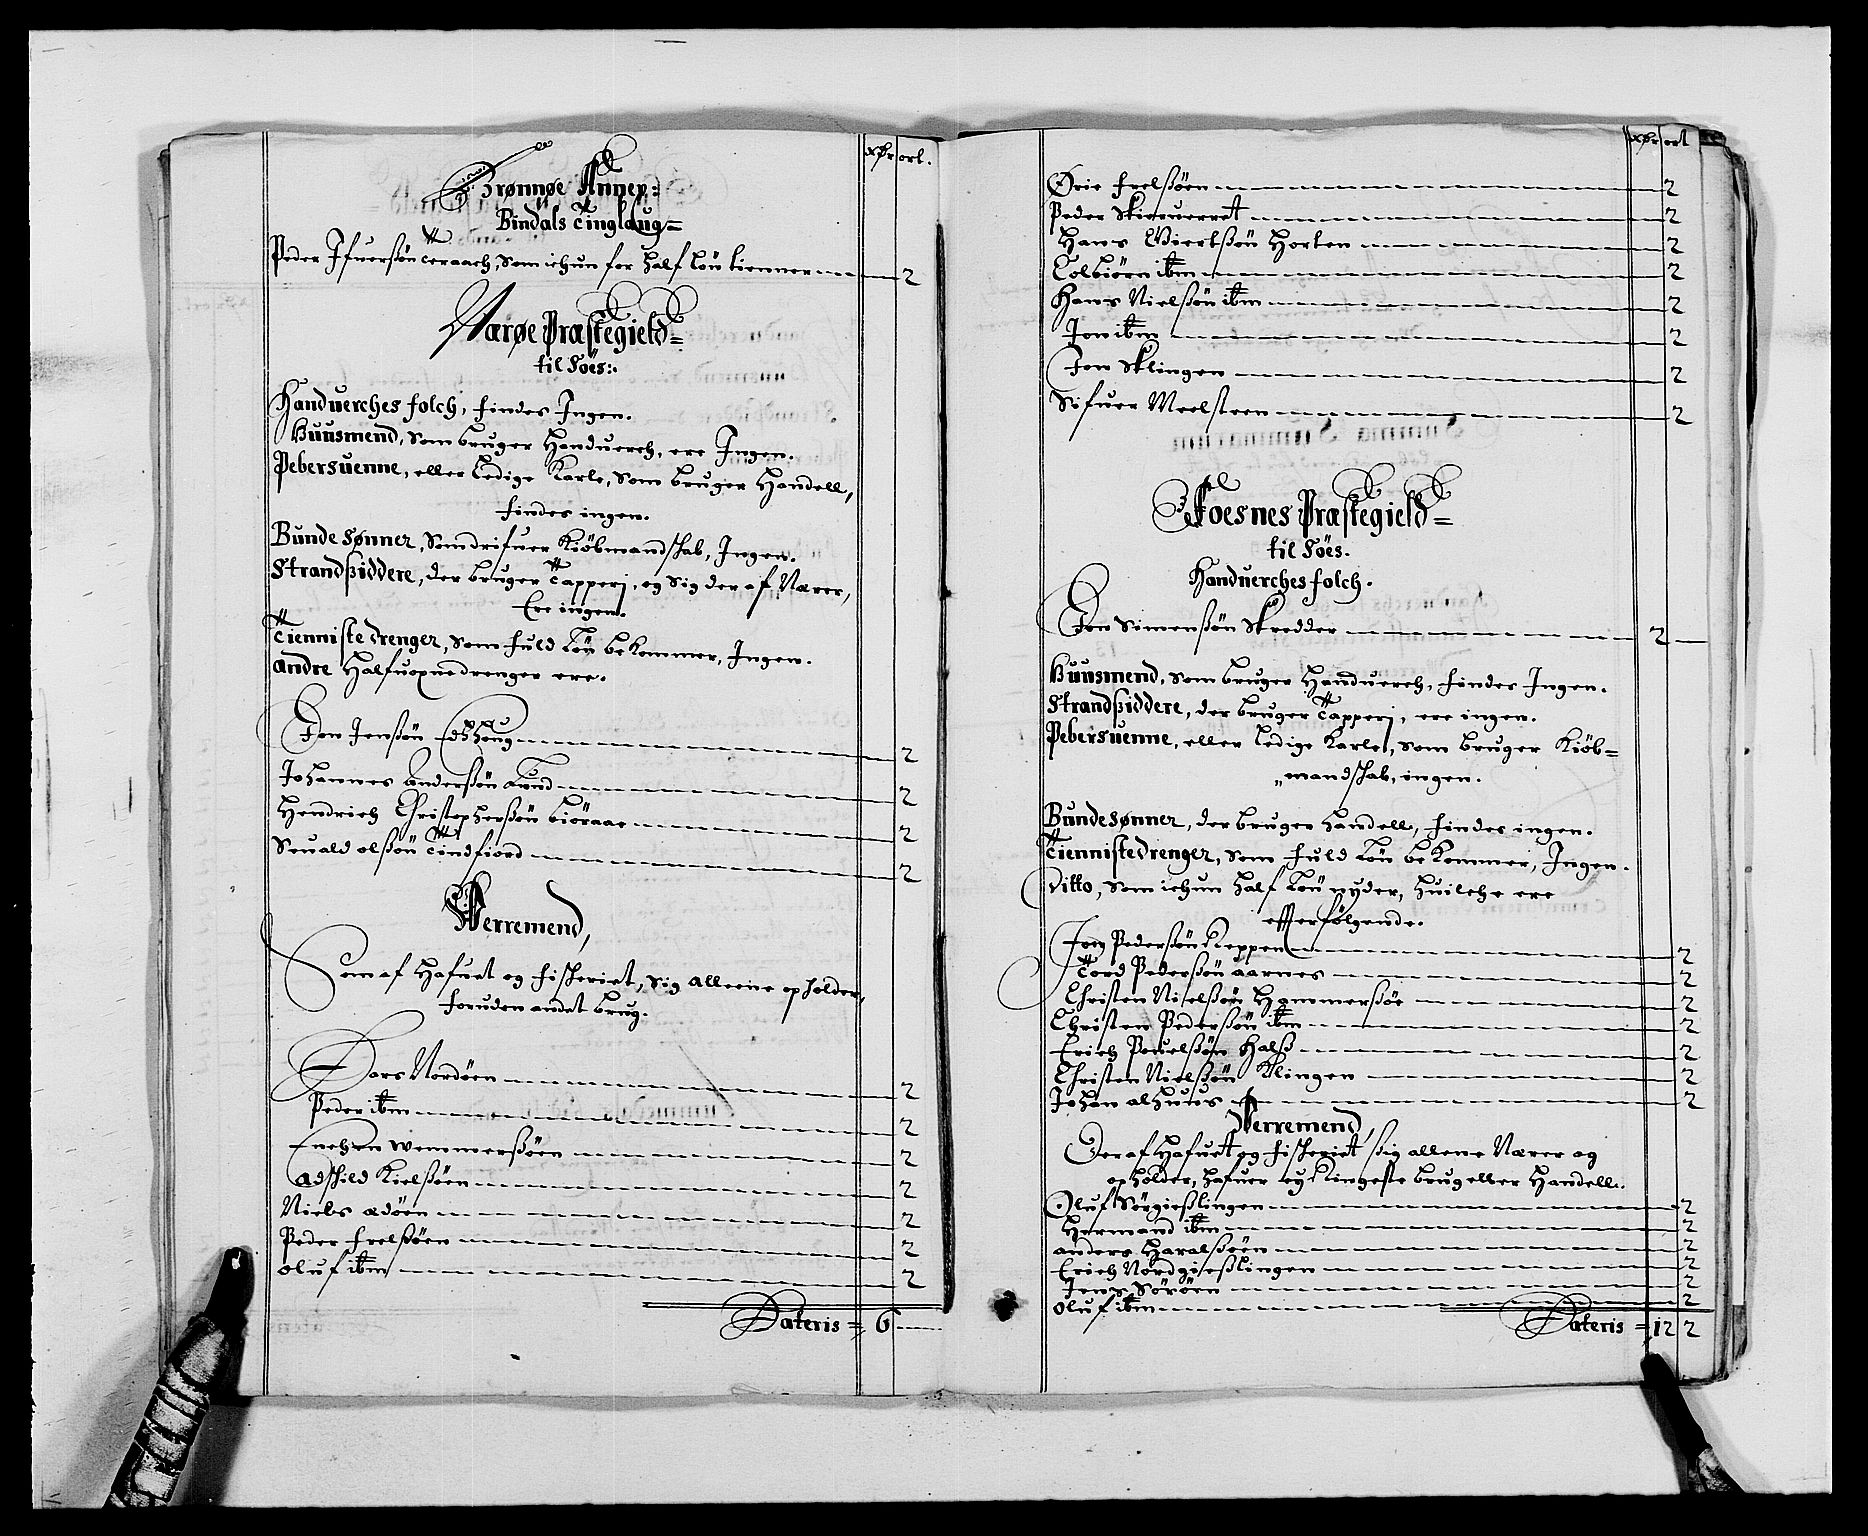 rdr ort.
Brønnøe Annex:
Bindals Tinglaug=
Peder Ifuersøn Teraach, som ichun for half løn tienner 2
Nærøe Præstegield=
til Søes:
Handuerches folch, findes Ingen.
Huusmend, som bruger Handuerch, ere Ingen.
Pebersuenne, eller ledige Karle, som bruger Handell,
findes ingen.
Bundesønner, som drifuer Kiøbmandschab, Ingen.
Strandsiddere, der bruger Tapperj, og sig der af Nærer,
Ere ingen.
Tienniste drenger, som fuld Løn bekommer, Ingen.
Andre Halfuopne drenger ere.
Jon Jensøn 2
Johannes Andersøn Lund 2
Hendrich Christophersøn 2
Seuald olsøn Tindfiord 2
Verremend,
Som af Hafuet og fischeriet, sig alleene opholder,
foruden andet brug.
Lars Nordøen 2
Peder ibm 2
2
Kielsøen 2
Niels 2
Peder frelsøen 2
oluf ibm 2
Lateris = 6
rdr ort
frelsøen 2
Peder 2
Hans Horten 2
Tolbiørn ibm 2
Hans Nielsøn ibm 2
Jon ibm 2
Jon Sklingen 2
Sifuer Meelsteen 2
Foesnes Præstegield=
til Søes.
Handuerches folch.
Jon Simensøn Skredder 2
Huusmend, som bruger Handuerch, findes Ingen.
Strandsiddere, der bruger Tapperj, ere ingen.
Pebersuenne, eller ledige Karle, som bruger Kiøb=
„mandschab, ingen.
Bundesønner, der bruger handell, findes ingen.
Tiennistedrenger, som fuld Løn bekommer, Ingen.
Ditto, som ichun half Løn nyder, huilche ere
efterfølgende.
Joen Pedersøn Seppen 2
Tord Pedersøn Aarnes 2
Christen Nielsøn Hammersøe 2
Christen Pedersøn ibm 2
Erich Pouelsøn Hals 2
Christen Nielsøn Klingen 2
Johan alhuus 2
Verremend,
Der af Hafuet og fischeriet sig allene Nærer og
opholder, hafuer ey Ringeste brug eller Handell.
Oluf Sørgieslingen 2
Hermand ibm 2
Anders Haralsøen 2
Erich Nordgieslingen 2
Jens Sørøen 2
oluf ibm 2
Lateris = 12 2